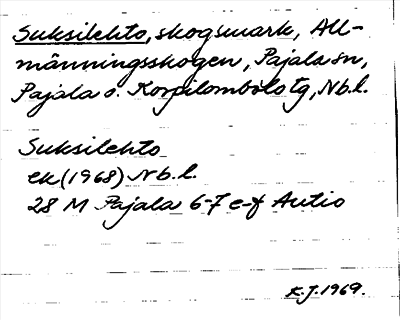 Suksilehto, skogsmark, All-
männingsskogen, Pajala sn,
Pajala o. Korpilombolo tg, Nb.l.
Suksilehto
ek (1968) Nb.l.
28 M Pajala 6-7 e-f Autio
K.J. 1969.